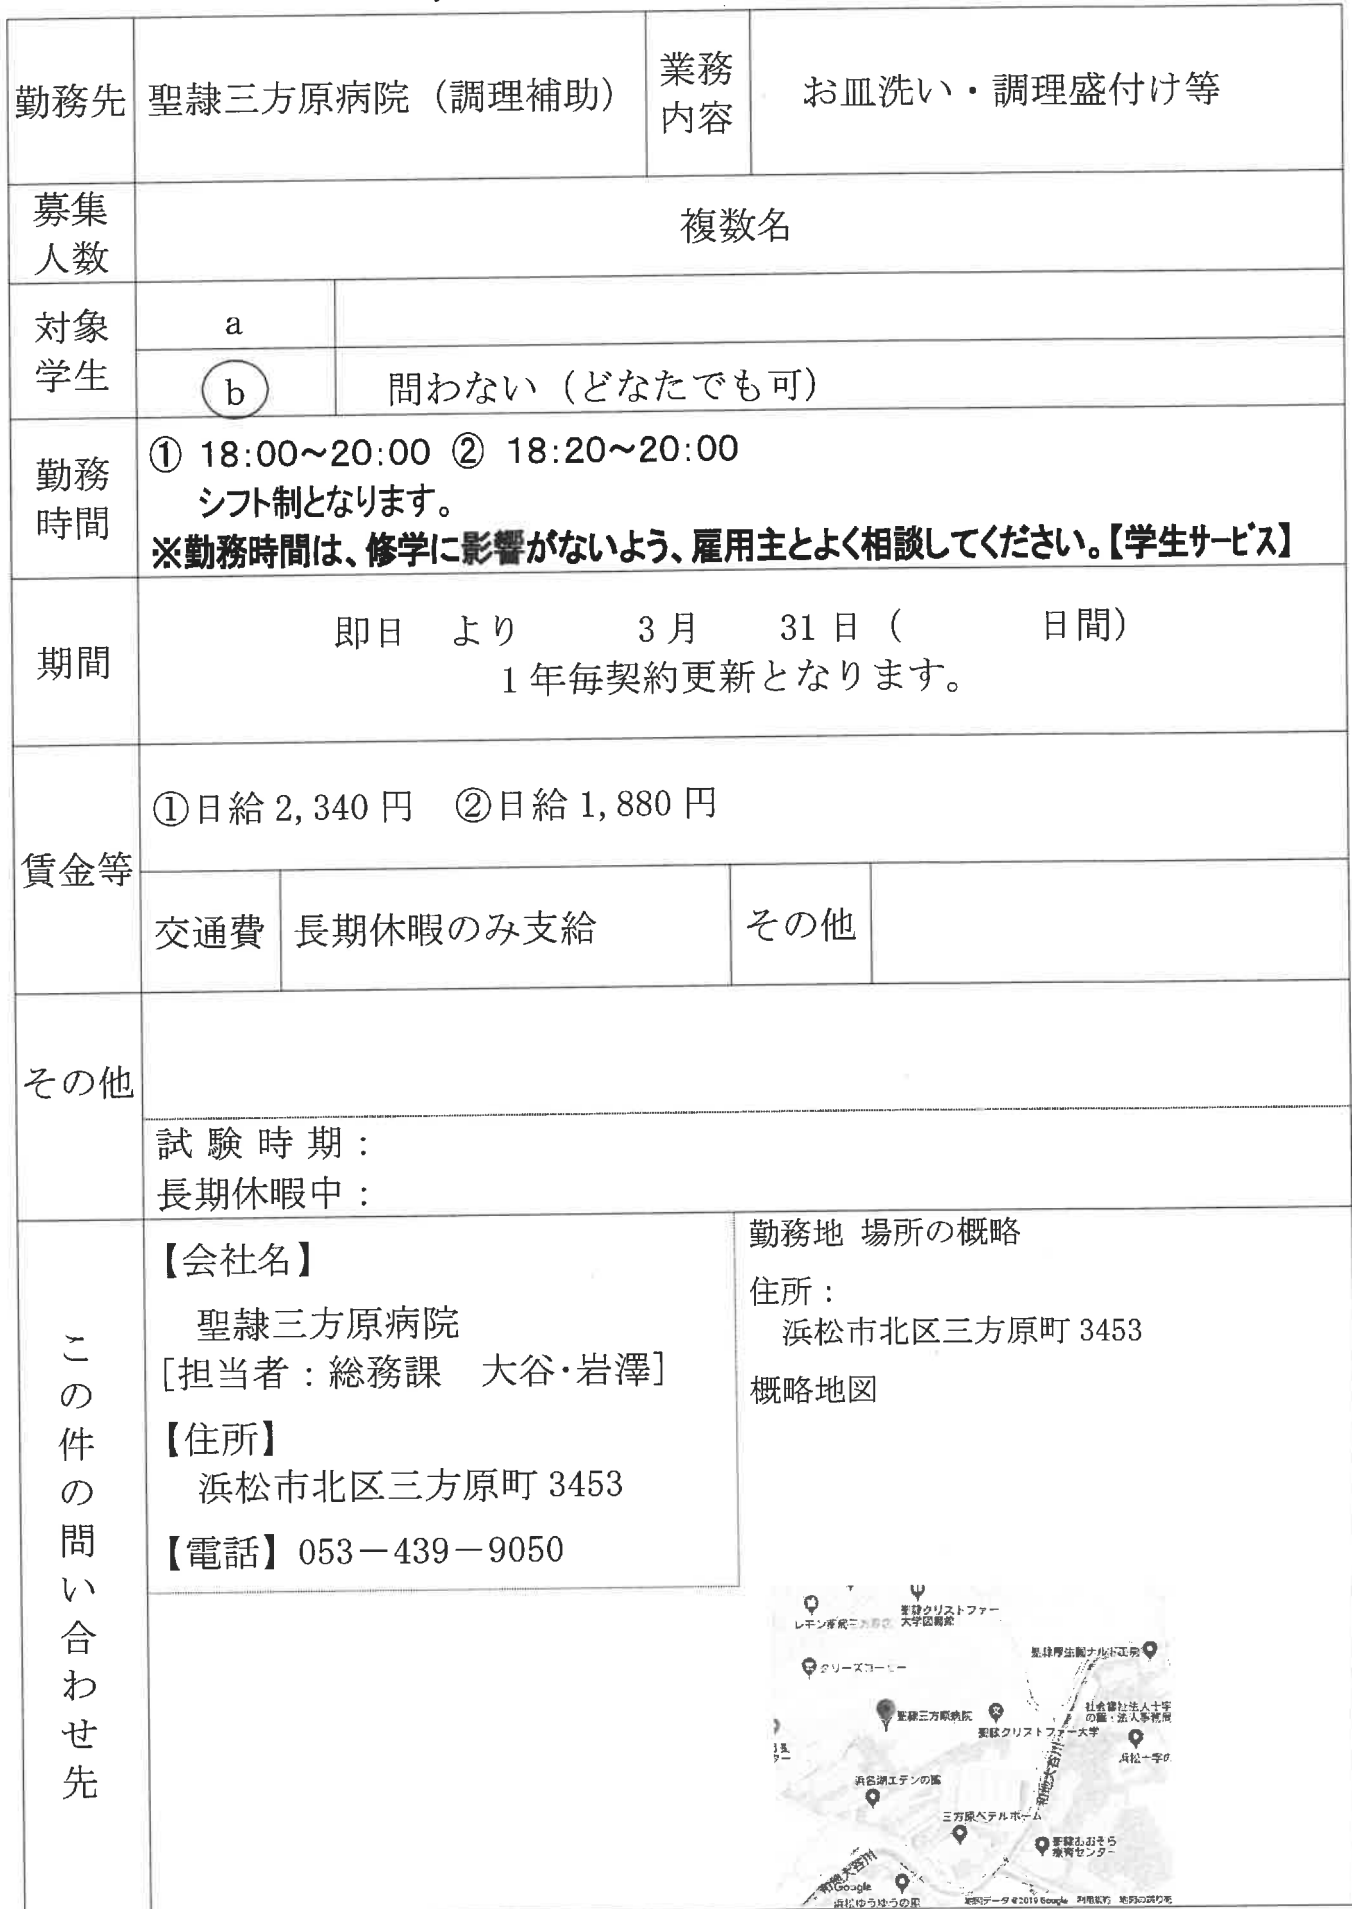 勤務先
聖隷三方原病院（調理補助）
業務
内容
お皿洗い・調理盛付け等
募集
人数
複数名
対象
学生
a
b
問わない（どなたでも可）
勤務
時間
① 18:00～20:00 ② 18:20～20:00
シフト制となります。
※勤務時間は、修学に影響がないよう、雇用主とよく相談してください。【学生サービス】
期間
即日 より 3月 31日（ 日間）
1年毎契約更新となります。
賃金等
①日給2,340円 ②日給1,880円
交通費
長期休暇のみ支給
その他
その他
試験時期：
長期休暇中：
この件の問い合わせ先
【会社名】
聖隷三方原病院
［担当者：総務課 大谷・岩澤］
【住所】
浜松市北区三方原町3453
【電話】053－439－9050
勤務地 場所の概略
住所：
浜松市北区三方原町3453
概略地図
聖隷クリストファー
大学図書館
クリーズコーナー
聖隷三方原病院
聖隷クリストファー大学
社会福祉法人十字
の園・法人事務局
浜松十字の
浜名湖エデンの園
三方原ベテルホーム
聖隷おおぞら
療育センター
和地大谷川
和地大谷川
Google
浜松ゆうゆうの里
地図データ ©2019 Google 利用規約